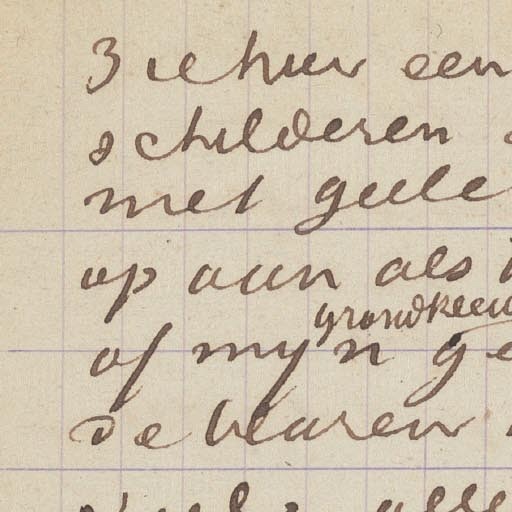 Ziehier een
schilderen
met geele
op aan als
grondkleur
of mijn ge
de blaren